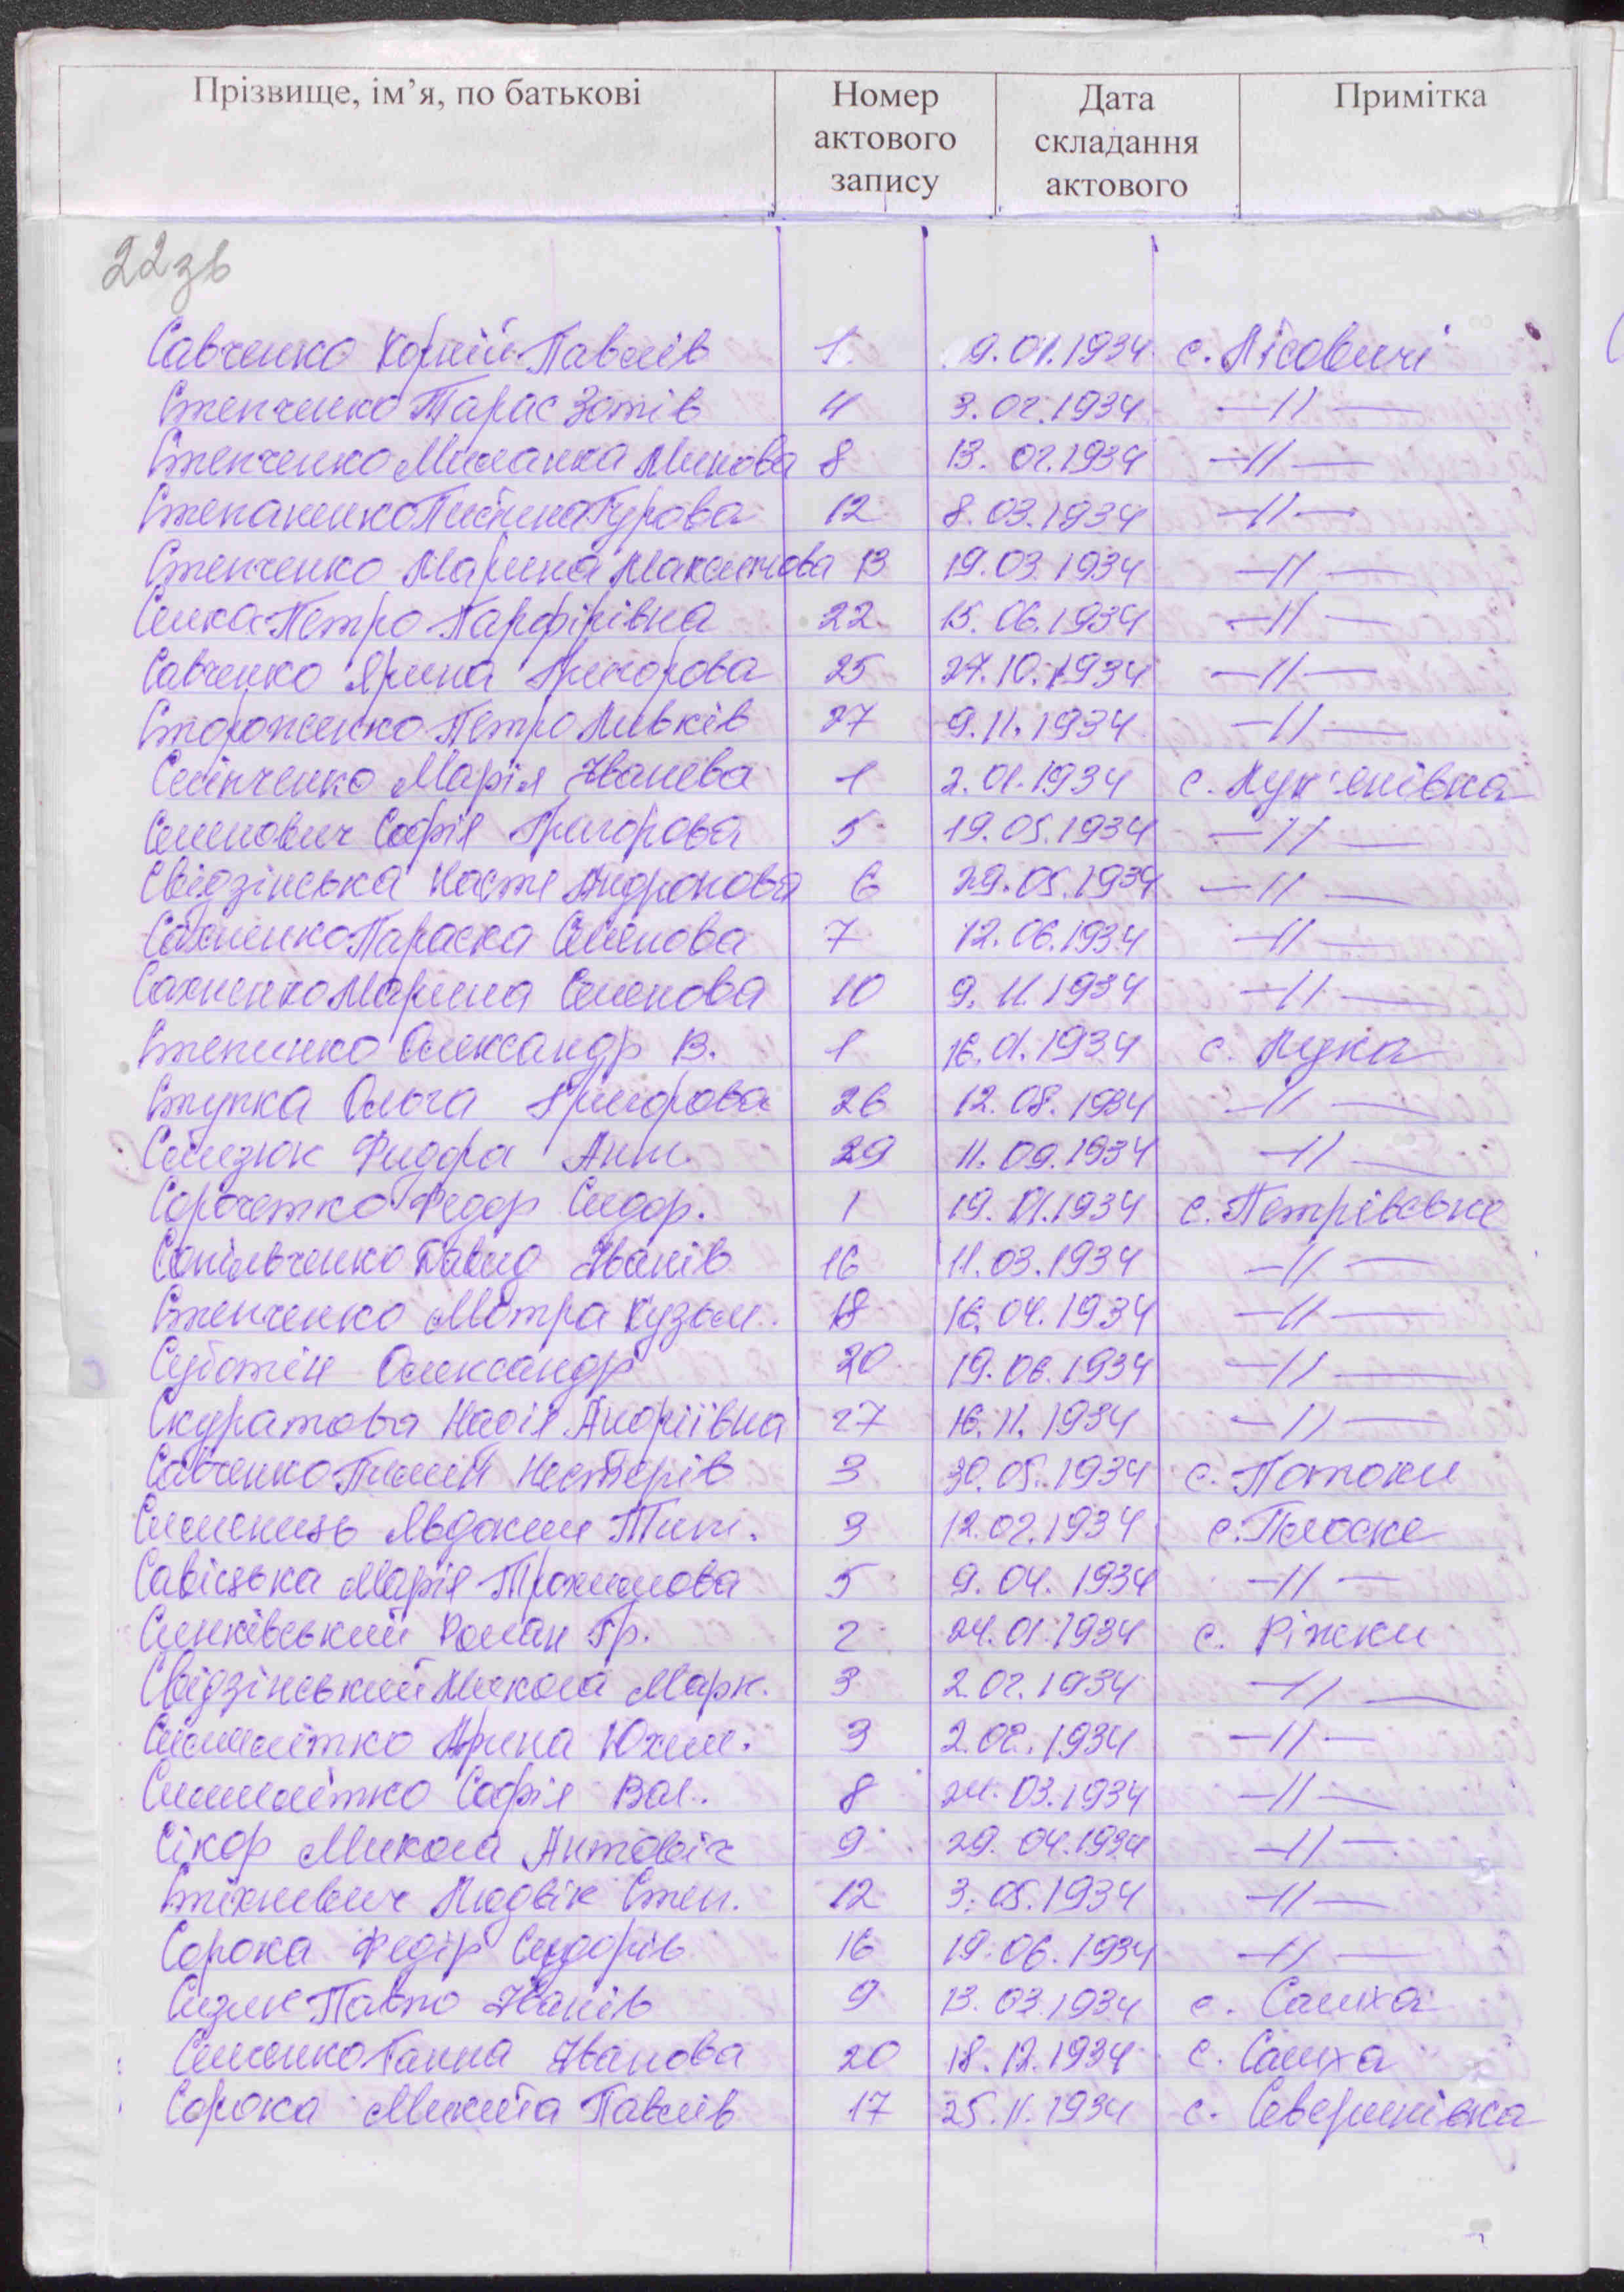 Прізвище, ім’я, по батькові Номер актового запису Дата складання актового Примітка
22зв
Савченко Корній Павлів 1. 9.01.1934 с. Лісовичі
Степченко Тарас Зотів 4 3.02.1934 —//—
Степченко Миланка Минова 8 13.02.1934 —//—
Степаненко Пистина Гурова 12 8.03.1934 —//—
Степченко Марина Максимова 13 19.03.1934 —//—
Петро Парфірівна 22 15.06.1934 —//—
Савченко Ярина Григорова 25 27.10.1934 —//—
Стороженко Петро Левків 27 9.11.1934 —//—
Марія Іванова 1 2.01.1934 с. Лук'янівка
Семнович Софія Григорова 5 19.05.1934 —//—
Свідзінська Настя Андронова 6 29.05.1934 —//—
Сахненко Параска Семенова 7 12.06.1934 —//—
Сахненко Марина Семенова 10 9.11.1934 —//—
Олександр В. 1 16.01.1934 с. Лука
Ступка Ольга Григорова 26 12.08.1934 —//—
Ант. 29 11.09.1934 —//—
Федор Сидор. 1 19.01.1934 с. Петрівське
Сопільченко Давид Іванів 16 11.03.1934 —//—
Степченко Мотра Кузьм. 18 16.04.1934 —//—
Суботін Олександр 20 19.06.1934 —//—
Скуратова Надія Андріївна 27 16.11.1934 —//—
Савченко Пилип Нестерів 3 30.05.1934 с. Потоки
Явдоким Тит. 3 12.02.1934 с. Плоске
Савіцька Марія Трохимова 5 9.04.1934 —//—
Синківський Роман Гр. 2 24.01.1934 с. Ріжки
Свідзінський Микола Марк. 3 2.02.1934 —//—
Ярина Юхим. 3 2.02.1934 —//—
Софія Вас. 8 24.03.1934 —//—
Сікор Микола Антовіч 9 29.04.1934 —//—
Стіхневич Людвік Степ. 12 3.05.1934 —//—
Сорока Федір Сидорів 16 19.06.1934 —//—
Павло Іванів 9 13.03.1934 с. Салиха
Ганна Іванова 20 18.12.1934 с. Салиха
Сорока Микита Павлів 17 25.11.1934 с. Северинівка